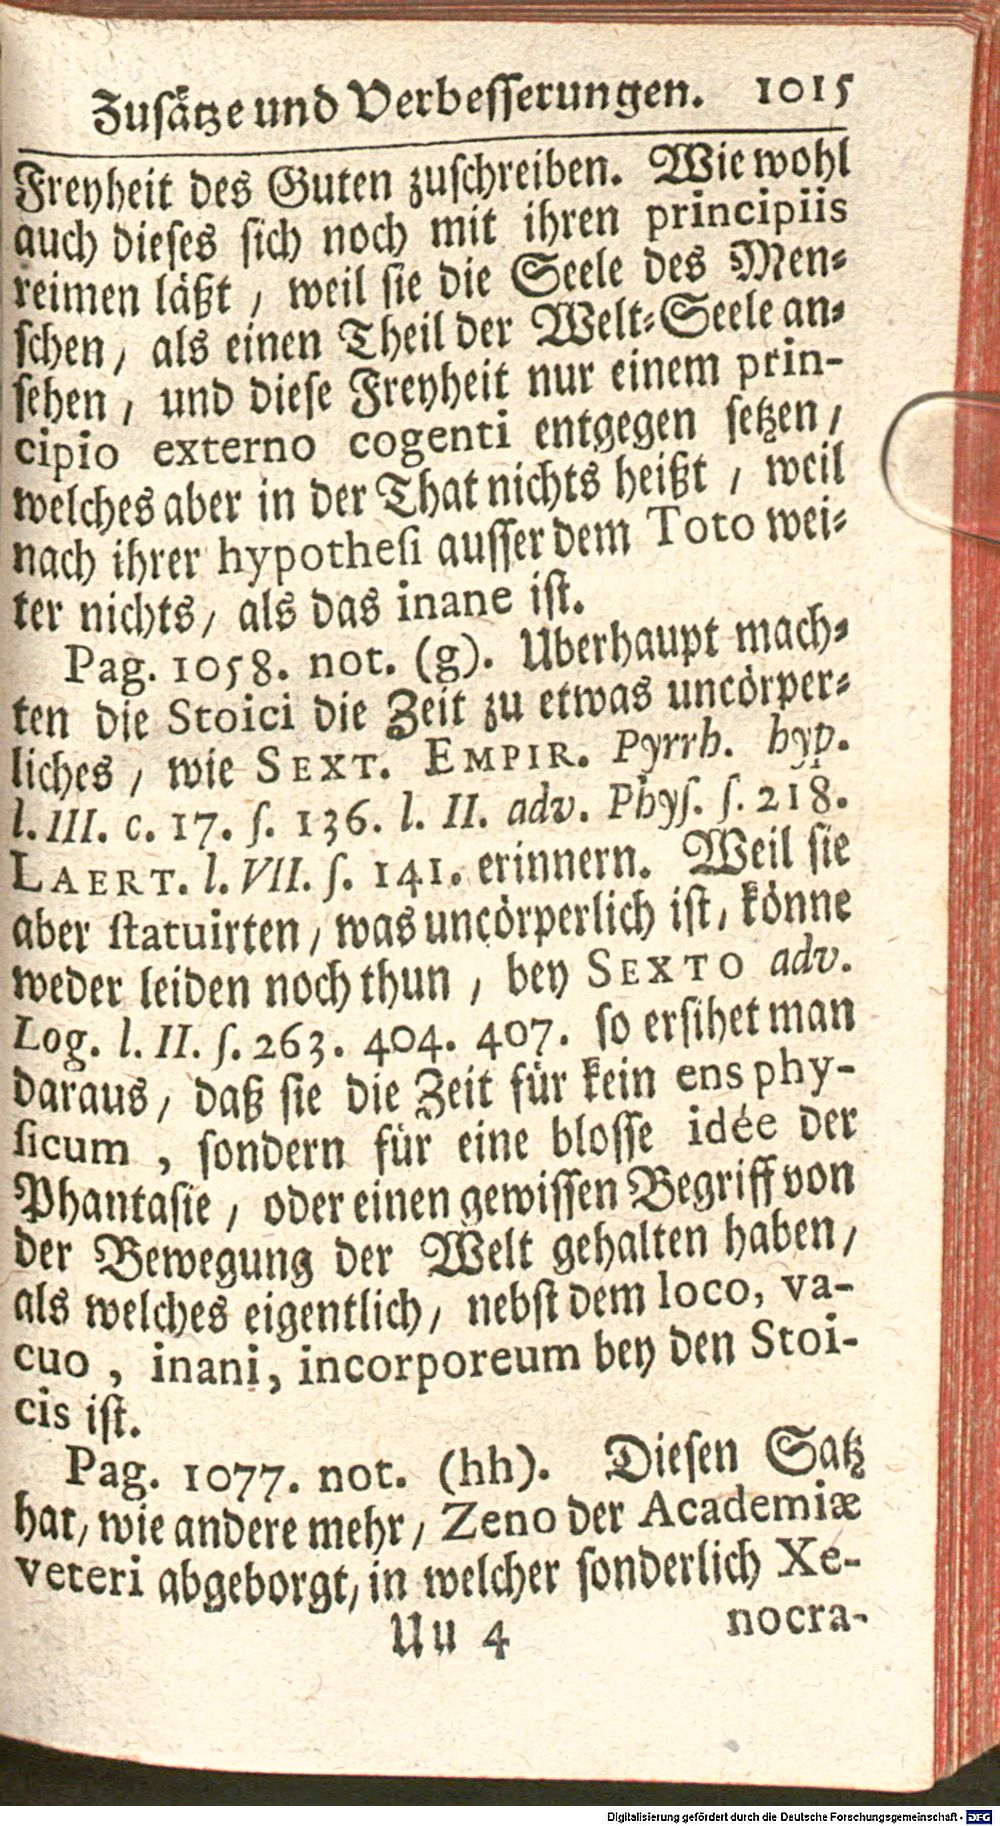 Zusätze und Verbesserungen. 1015
Freyheit des Guten zuschreiben. Wiewohl
auch dieses sich noch mit ihren principiis
reimen läßt, weil sie die Seele des Men-
schen, als einen Theil der Welt-Seele an-
sehen, und diese Freyheit nur einem prin-
cipio externo cogenti entgegen setzen,
welches aber in der That nichts heißt, weil
nach ihrer hypothesi ausser dem Toto wei-
ter nichts, als das inane ist.
Pag. 1058. not. (g). Uberhaupt mach-
ten die Stoici die Zeit zu etwas uncörper-
liches, wie SEXT. EMPIR. Pyrrh. hyp.
l. III. c. 17. s. 136. l. II. adv. Phys. s. 218.
LAERT. l. VII. s. 141. erinnern. Weil sie
aber statuirten, was uncörperlich ist, könne
weder leiden noch thun, bey SEXTO adv.
Log. l. II. s. 263. 404. 407. so ersihet man
daraus, daß sie die Zeit für kein ens phy-
sicum, sondern für eine blosse idée der
Phantasie, oder einen gewissen Begriff von
der Bewegung der Welt gehalten haben,
als welches eigentlich, nebst dem loco, va-
cuo, inani, incorporeum bey den Stoi-
cis ist.
Pag. 1077. not. (hh). Diesen Satz
hat, wie andere mehr, Zeno der Academiæ
veteri abgeborgt, in welcher sonderlich Xe-
Uu 4 nocra-
Digitalisierung gefördert durch die Deutsche Forschungsgemeinschaft - DFG